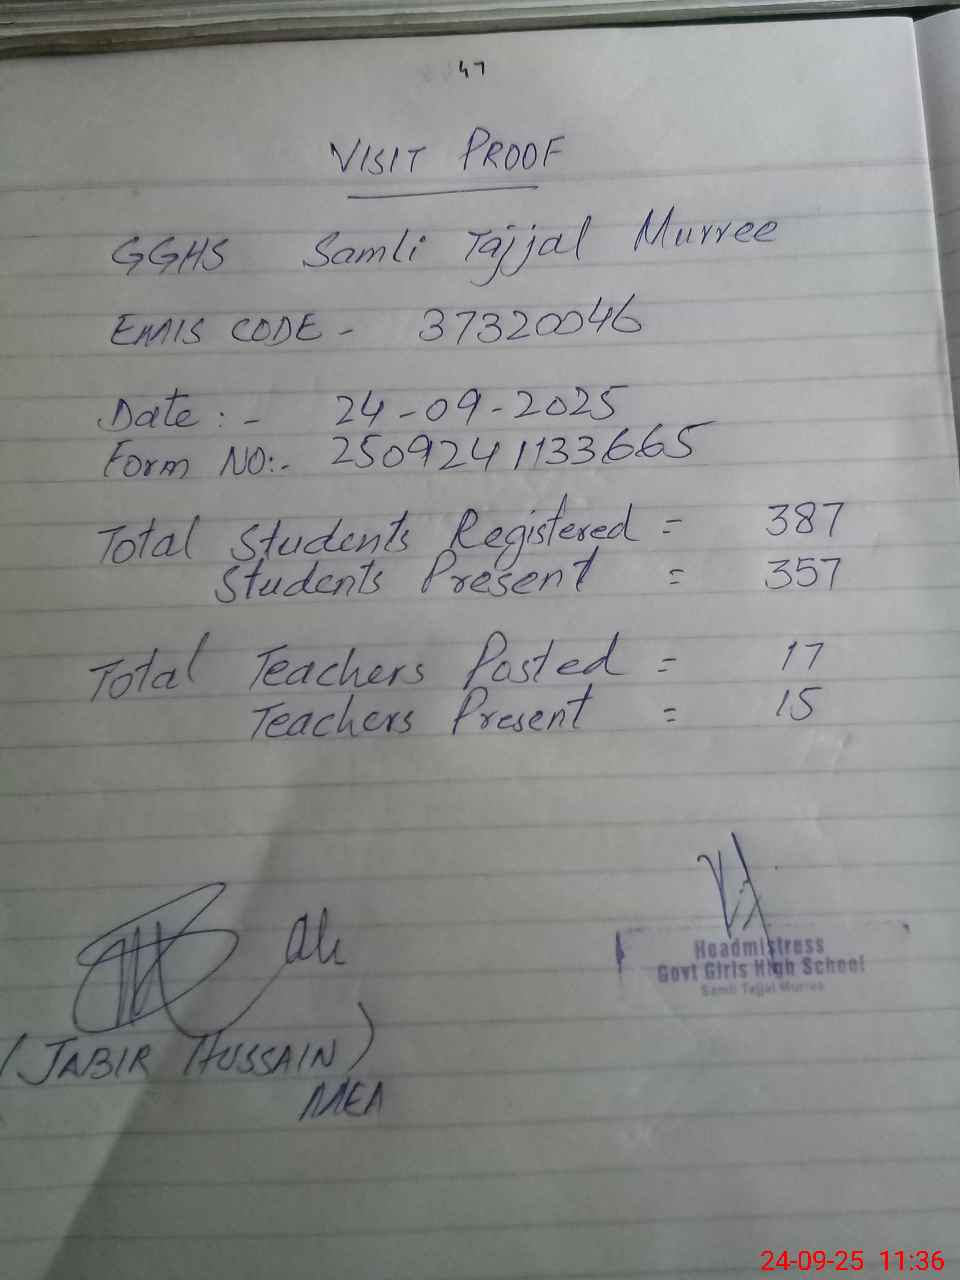 47
VISIT PROOF
GGHS Samli Tajjal Murree
EMIS CODE - 37320046
Date :- 24-09-2025
Form NO:- 2509241133665
Total Students Registered = 387
Students Present = 357
Total Teachers Posted = 17
Teachers Present = 15
Headmistress
Govt Girls High School
Samli Tajjal Murree
(JABIR HUSSAIN)
MEA
24-09-25 11:36